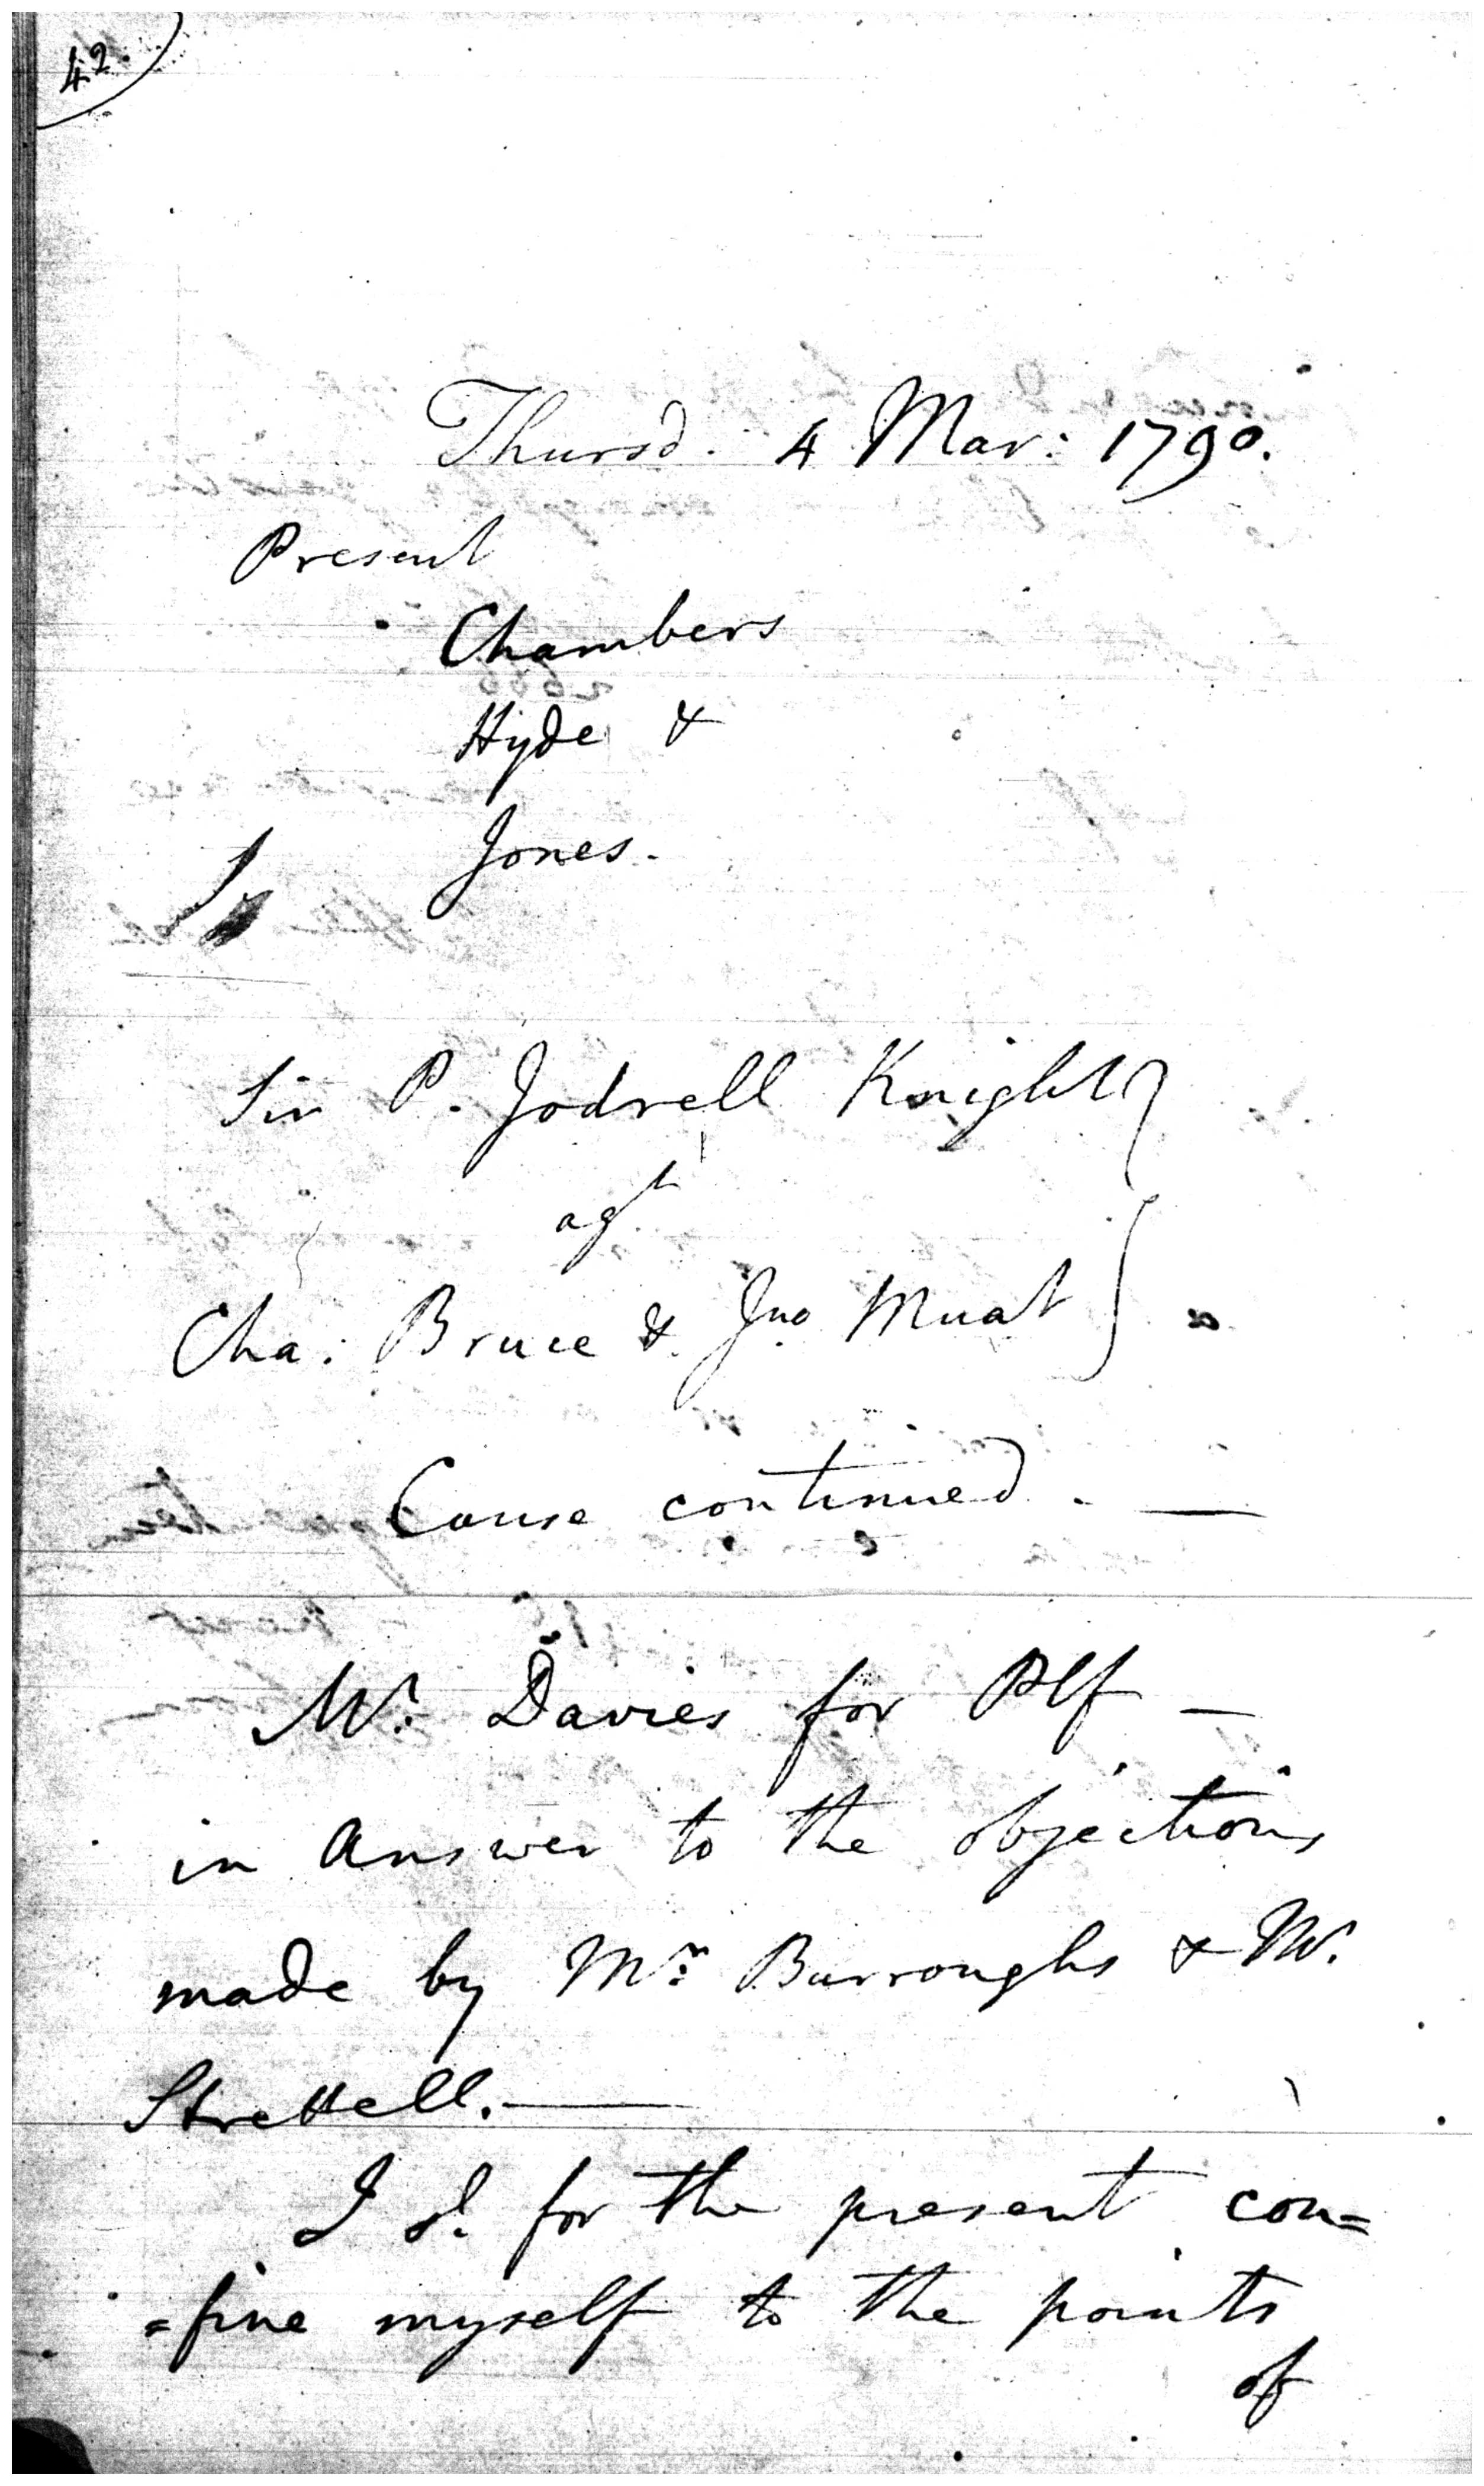 42
Thursd. 4 Mar: 1790.
Present
Chambers
Hyde &
Jones.
Sir P. Jodrell Knight
agt
Cha: Bruce & Jno Muat
Cause continued. —
Mr. Davies for Plf —
in answer to the objections
made by Mr. Burroughs & Mr.
Strettell. —
I sl. for the present con=
=fine myself to the points
of